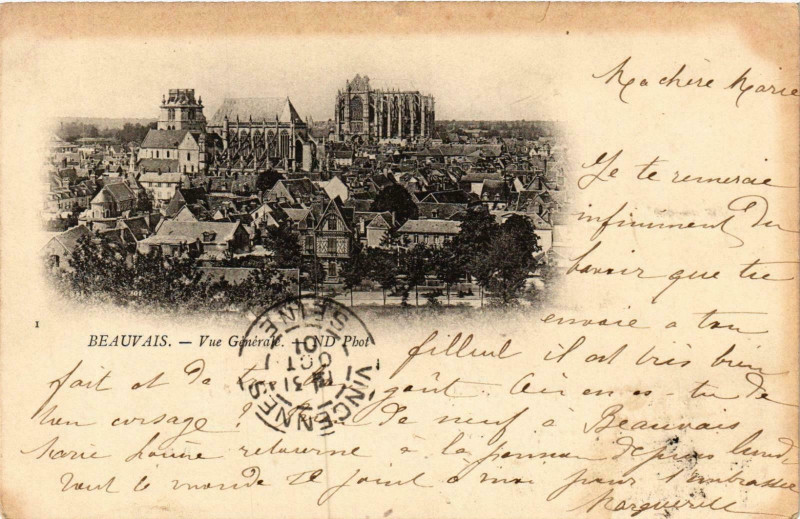 Ma chère Marie
Je te remercie
infiniment du
bavoir que tu
envoie a ton
1
BEAUVAIS. — Vue Générale. — ND Phot
filleul il est très bien
VINCENNES
SEINE
31
OCT
01
fait et de goût. Où en es-tu de
ton corsage ? de neuf à Beauvais
Marie retourne à la depuis lundi
tout le monde se joint a moi pour t'embrasser
Marguerite